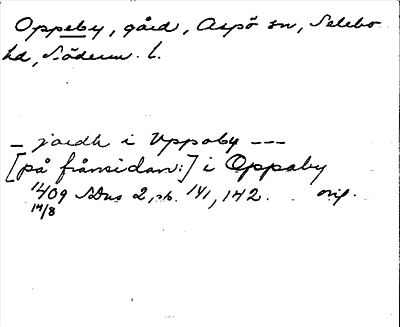 Oppeby, gård, Aspö sn, Selebo
hd, Söderm. l.
– jordh i Uppoby ---
[på frånsidan:] i Oppaby
1409 SDns 2, sh. 141, 142. orig.
14/8